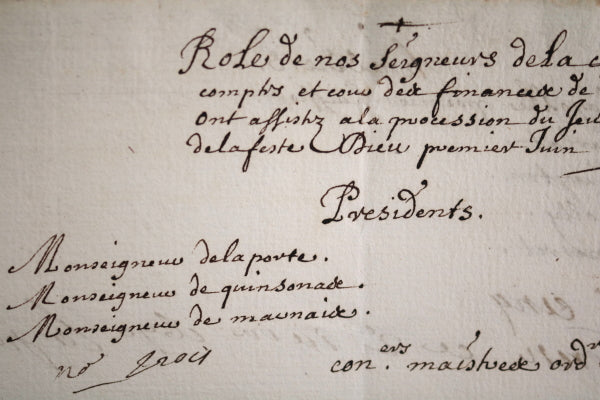 Role de nos seigneurs de la c
comptes et cour des finances de
ont assistez a la procession du Jeu
de la feste Dieu premier Juin
Presidents.
Monseigneur delaporte.
Monseigneur de quinsonas.
Monseigneur de
no trois
con.ers maistres ordr
cinq